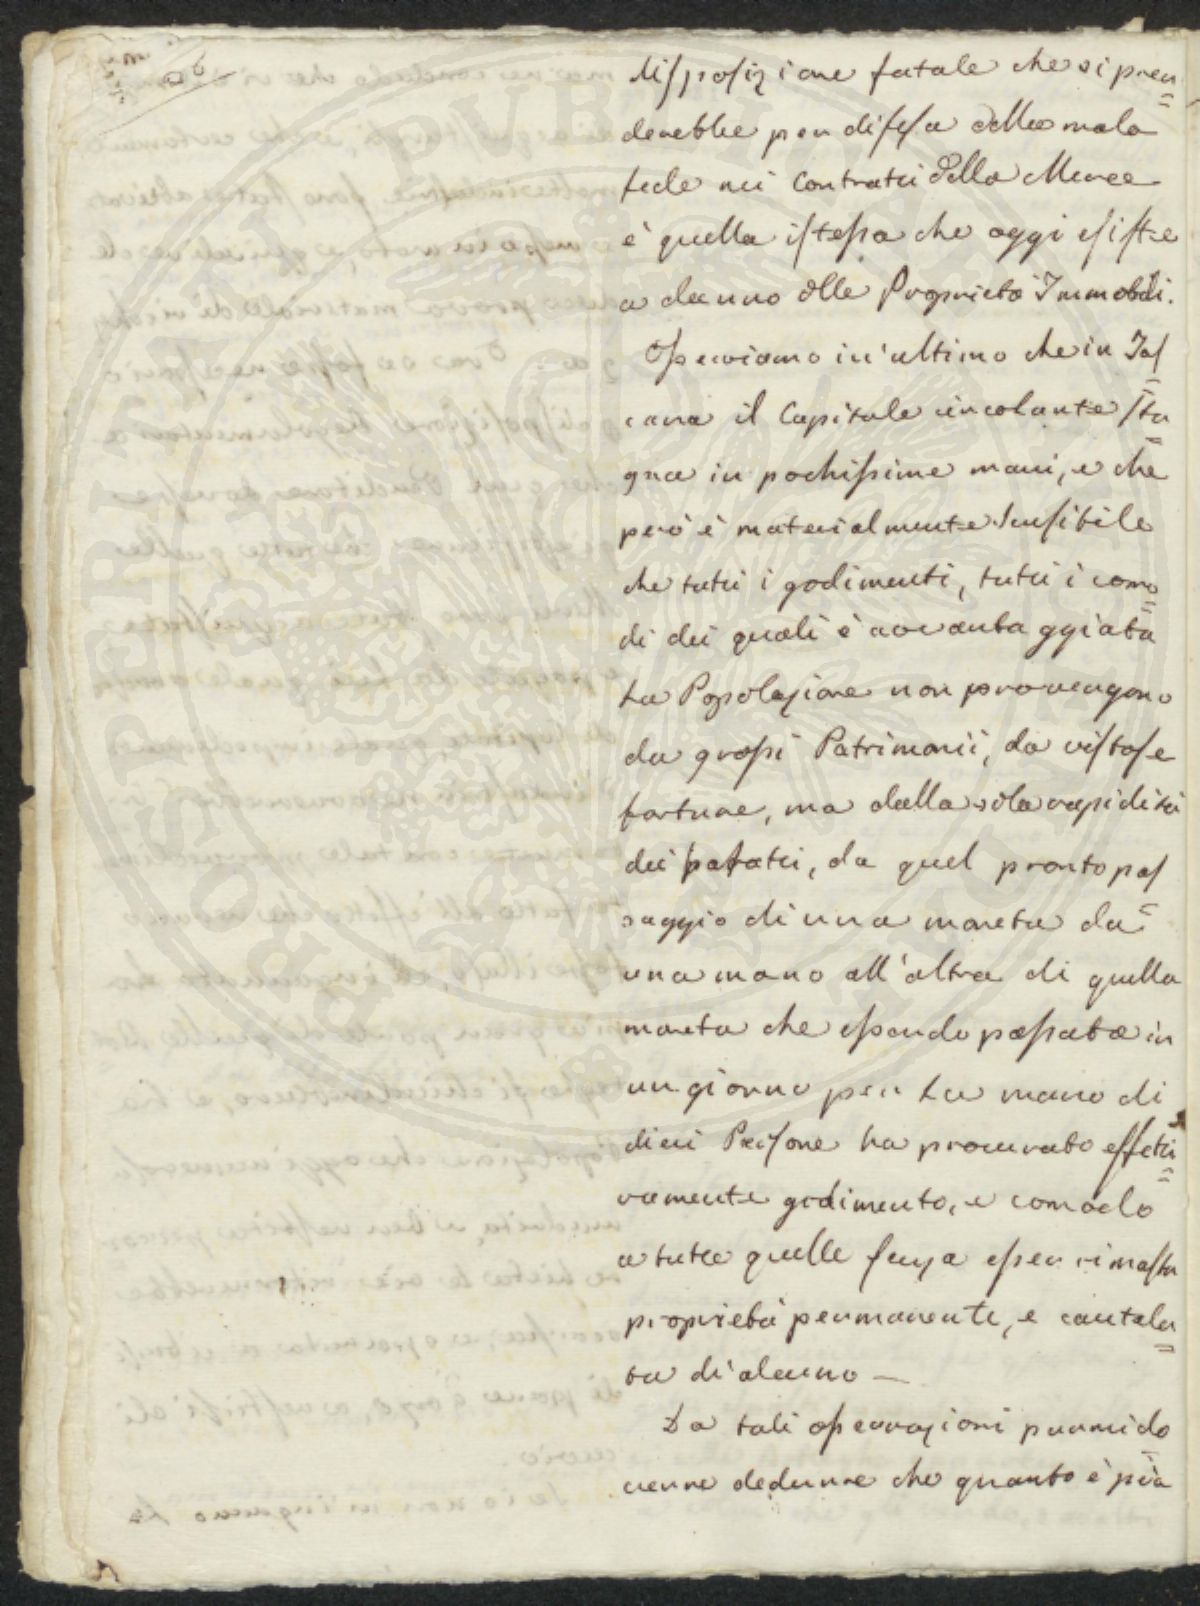 disposizione fatale che si pren=
derebbe per difesa della mala
fede nei Contratti della Merce
è quella istessa che oggi esiste
a danno delle Proprietà Immobili.
Osserviamo in'ultimo che in Tos=
cana il Capitale circolante sta=
gna in pochissime mani, e che
però è materialmente sensibile
che tutti i godimenti, tutti i como=
di dei quali è avvantaggiata
la Popolazione non provengono
da grossi Patrimonii, da vistose
fortune, ma dalla sola rapidità
dei , da quel pronto pas=
saggio di una moneta da
una mano all'altra di quella
moneta che essendo passata in
un giorno per la mano di
dieci Persone ha procurato effetti=
vamente godimento, e comodo
a tutte quelle senza esser rimasta
proprietà permanente, e cautela=
ta di alcuno —
Da tali osservazioni parmi do=
verne dedurre che quanto è più